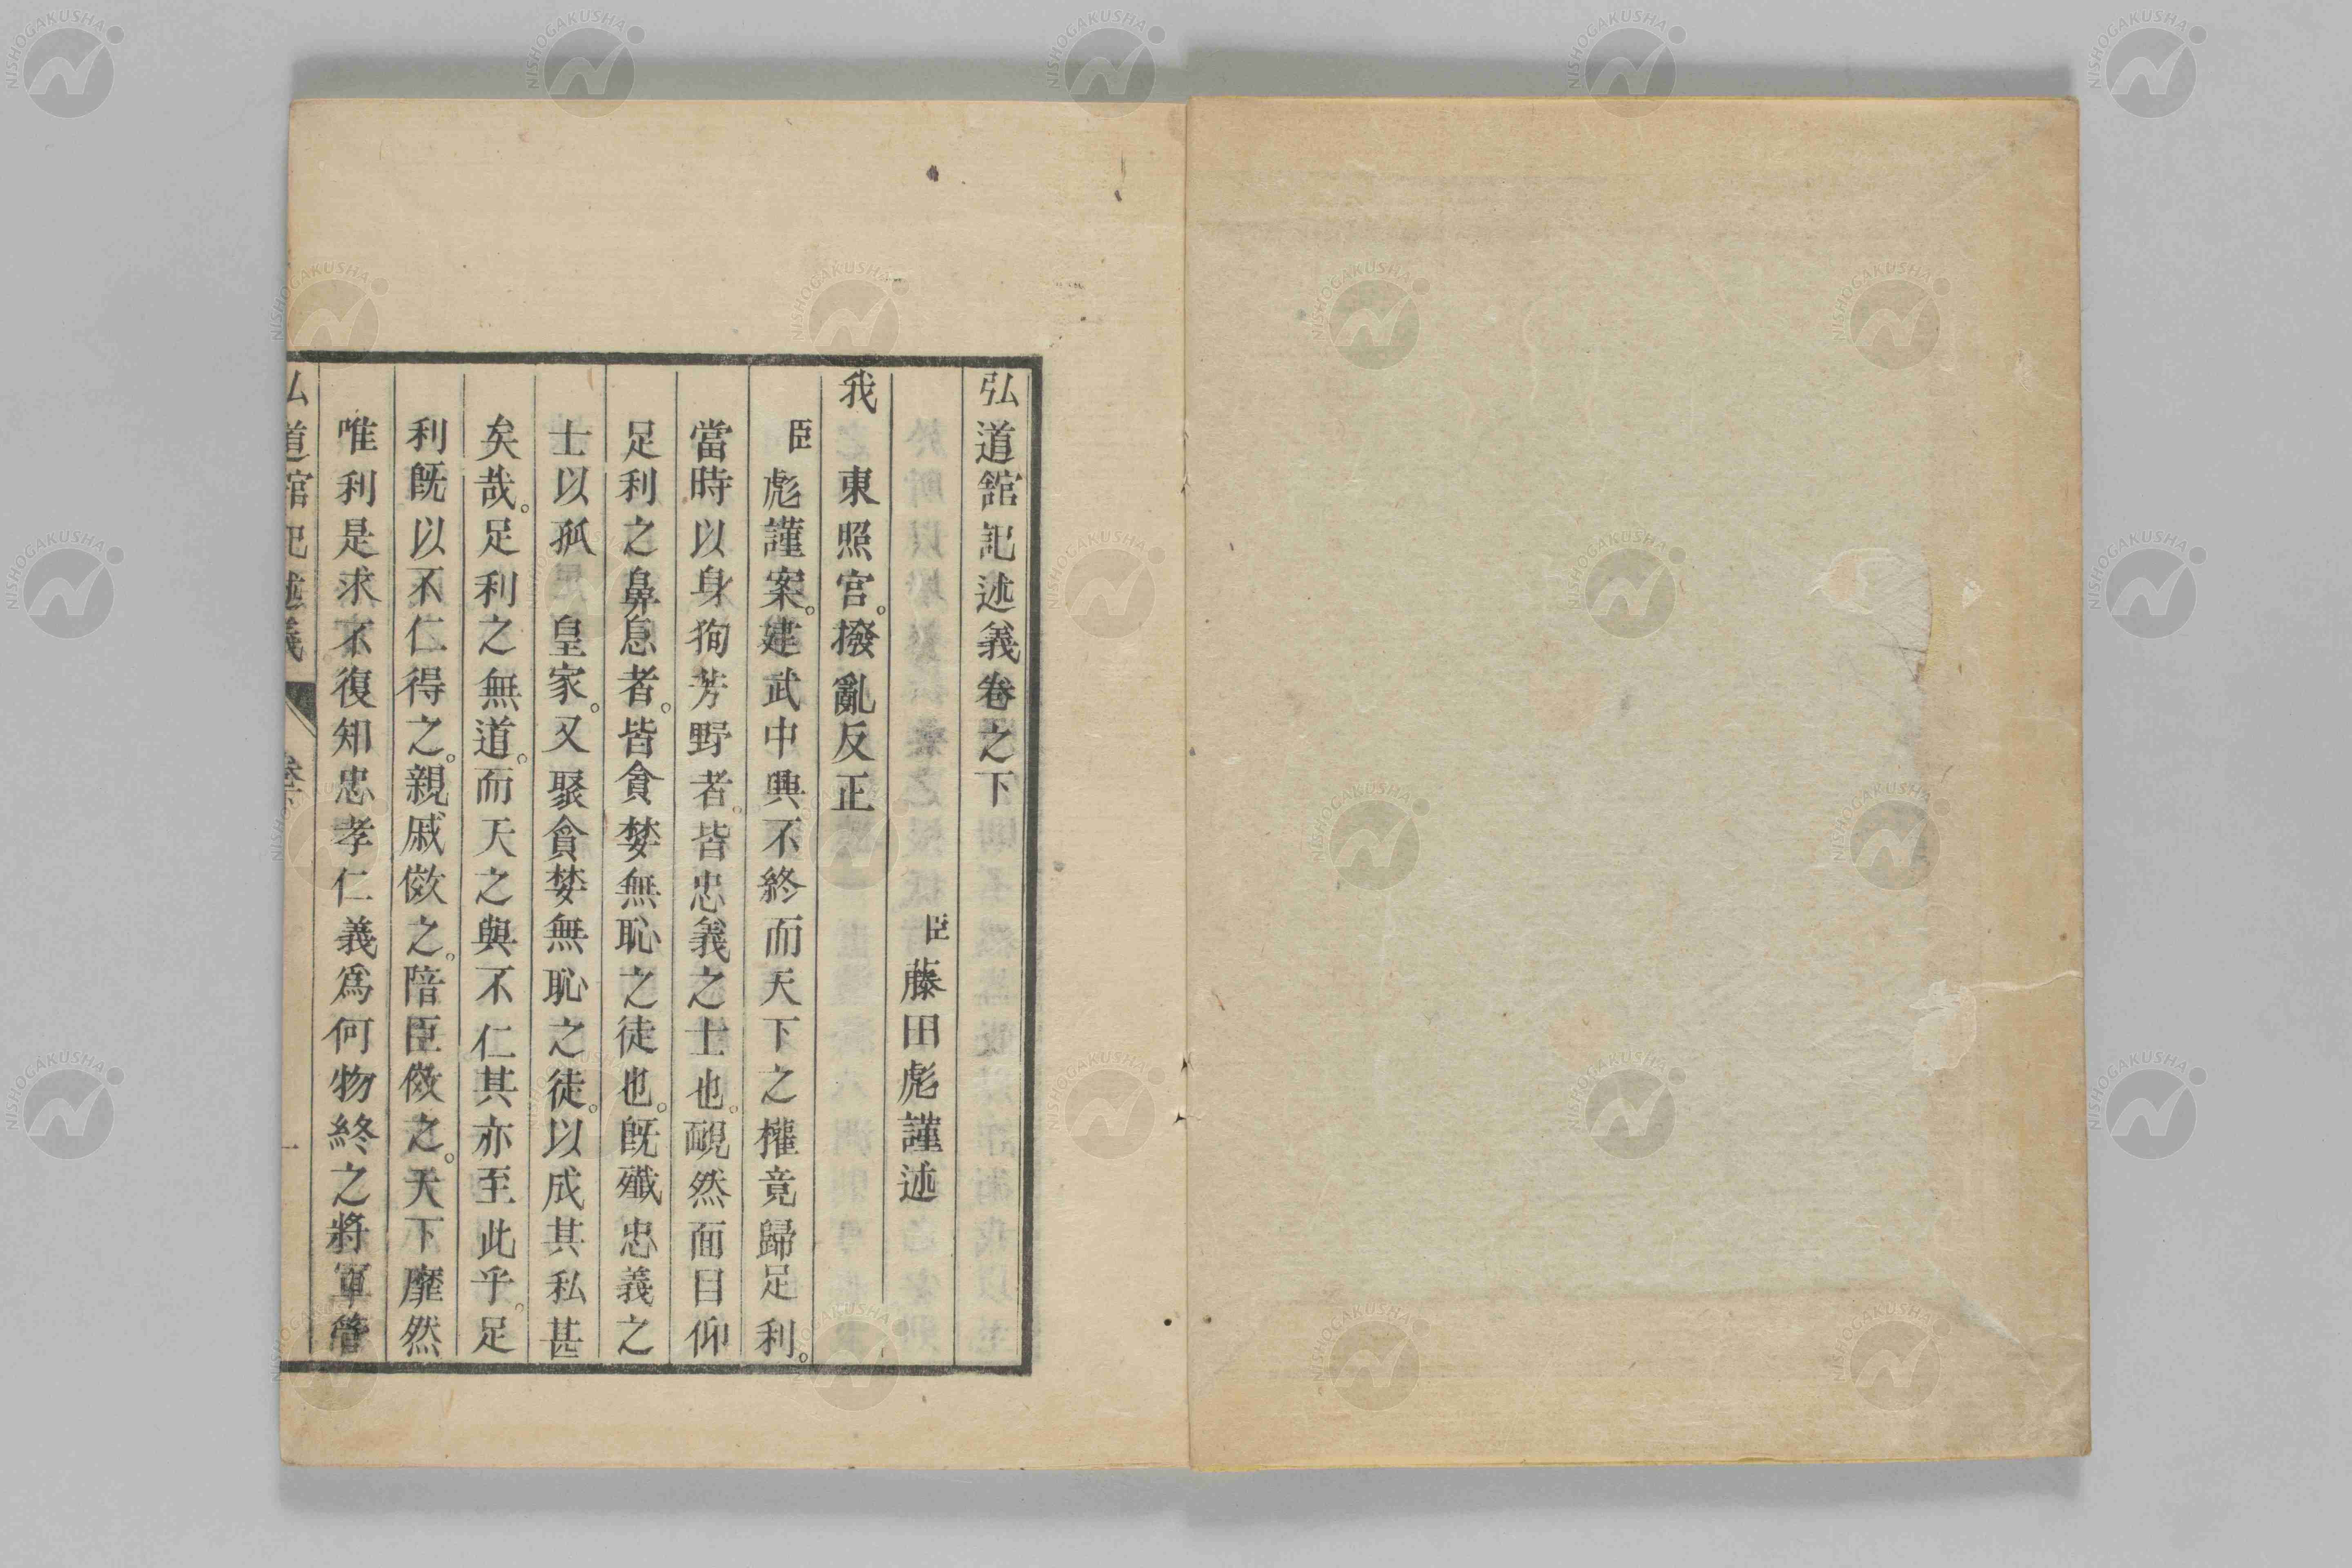 弘道舘記述義卷之下
臣藤田彪謹述
我　東照宮。撥亂反正
臣彪謹案。建武中興不終而天下之權竟歸足利。
當時以身狥芳野者。皆忠義之士也。靦然面目仰
足利之鼻息者。皆貪婪無恥之徒也。既殱忠義之
士以孤　皇家。又聚貪婪無恥之徒。以成其私甚
矣哉。足利之無道。而天之與不仁其亦至此乎。足
利既以不仁得之。親戚傚之。陪臣傚之。天下靡然
唯利是求不復知忠孝仁義爲何物終之將軍管
弘道舘記述義　卷下　一
NISHOGAKUSHA